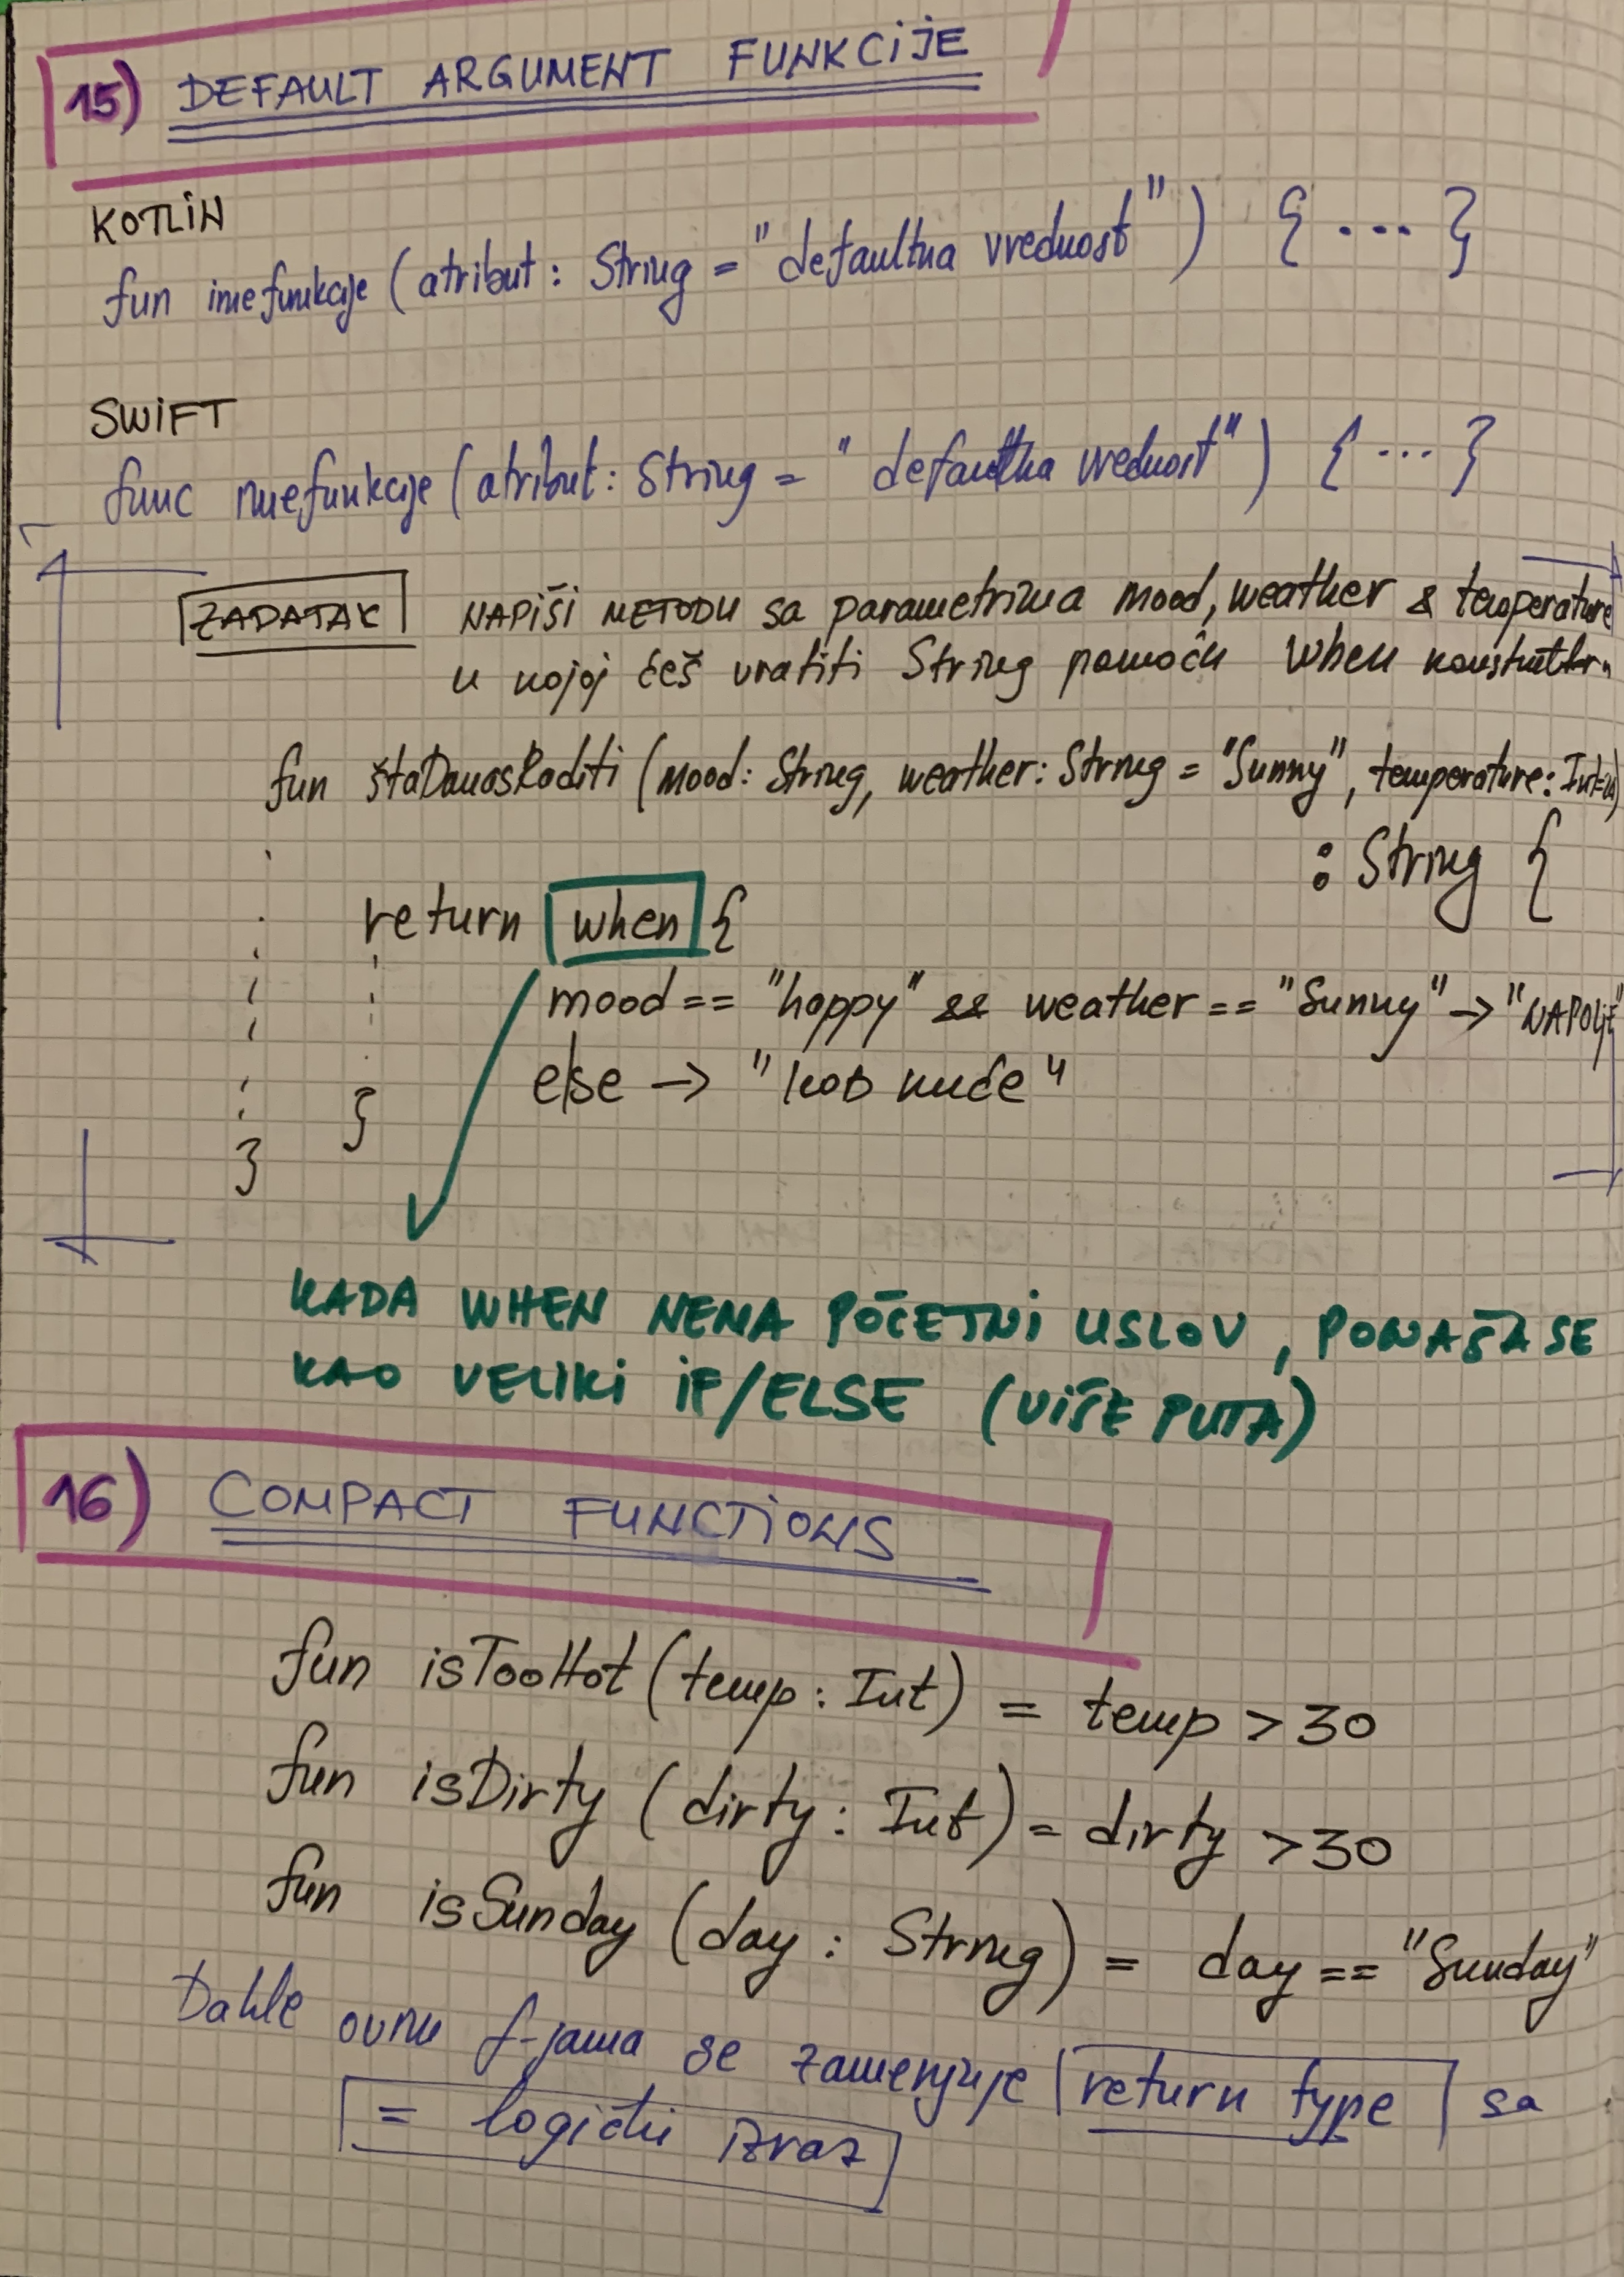 15) DEFAULT ARGUMENT FUNKCIJE
KOTLIN
fun imefunkcije (atribut: String = "defaultna vrednost") { ... }
SWIFT
func imefunkcije (atribut: String = "defaultna vrednost") { ... }
ZADATAK NAPIŠI METODU sa parametrima mood, weather & temperature
u kojoj ćeš vratiti String pomoću when
fun štaDanasRaditi (mood: String, weather: String = "Sunny", temperature: Int=24)
: String {
return when {
mood == "happy" && weather == "Sunny" -> "NAPOLJE"
else -> "kod kuće"
}
}
KADA WHEN NEMA POČETNI USLOV, PONAŠA SE
KAO VELIKI IF/ELSE (VIŠE PUTA)
16) COMPACT FUNCTIONS
fun isTooHot (temp: Int) = temp > 30
fun isDirty (dirty: Int) = dirty > 30
fun isSunday (day: String) = day == "Sunday"
Dakle ovim f-jama se zamenjuje return type sa
= logički izraz